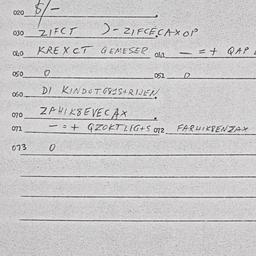 020 $/-
030 ZIFCT )-ZIFCECAXOP
040 KREXCT GEMESER 041 - = + QAP
050 0 051 0
060 DI KINDOT
070 ZPHIK8EVECAX
071 - = + QZOKTLIG+S 072 FARHIKBENZAX
073 0